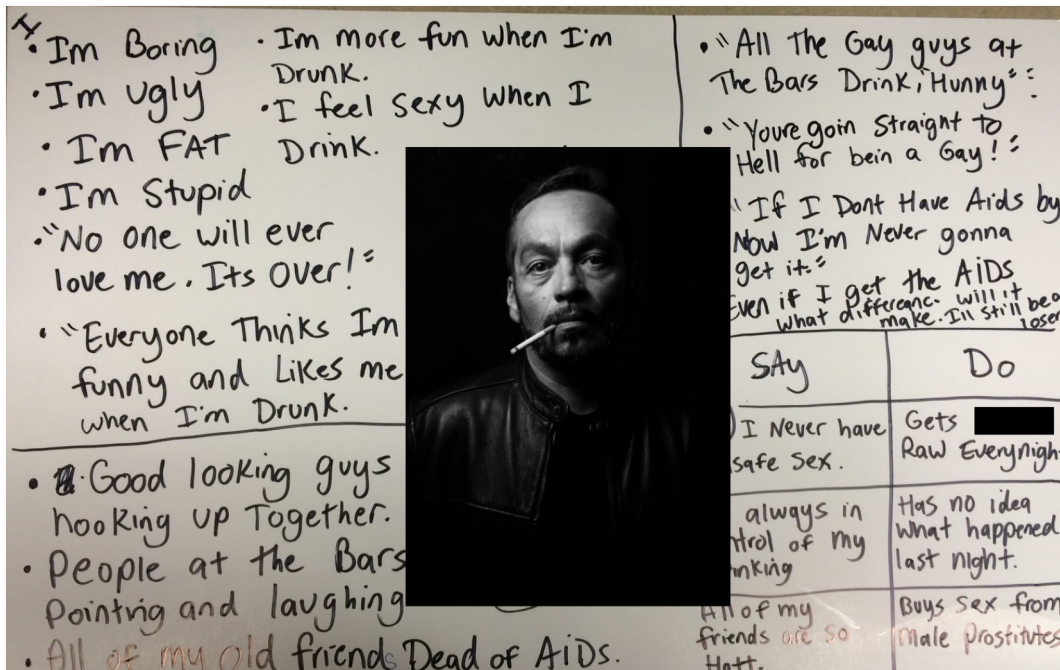 • Im Boring
• Im Ugly
• Im FAT
• Im Stupid
• "No one will ever
love me. Its Over!"
• "Everyone Thinks Im
funny and Likes me
when I'm Drunk.
• Im more fun when I'm
Drunk.
• I feel Sexy when I
Drink.
• "All The Gay guys at
The Bars Drink, Hunny"
• "Youre goin Straight to
Hell for bein a Gay!"
"If I Dont Have Aids by
Now I'm Never gonna
get it."
Even if I get the AiDs
what difference will it
make. Ill still be a
loser
• Good looking guys
hooking up Together.
• People at the Bars
Pointing and laughing
• All of my old friends Dead of AiDs.
SAy
Do
I Never have
safe sex.
Gets
Raw Everynigh
always in
of my
Has no idea
what happened
last night.
All of my
friends are so
Hott.
Buys sex from
Male Prostitutes